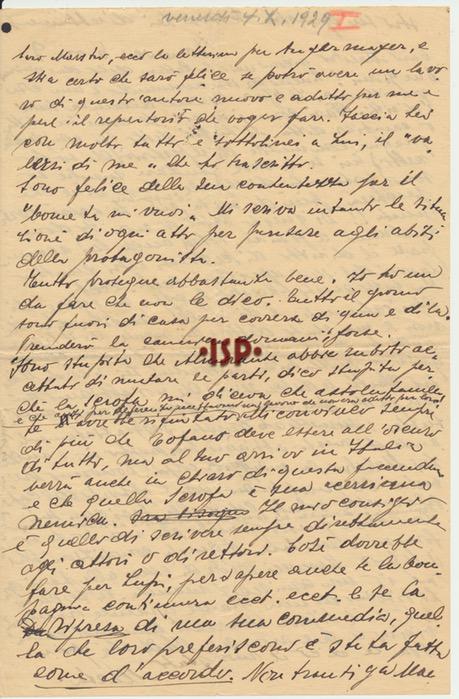 venerdì 4.X.1929 I
Caro Maestro, ecco la letterina per Anglermayer, e
stia certo che sarò felice se potrò avere un lavo
ro di questo autore nuovo e adatto per me e
per il repertorio che voglio fare. Faccia Lei
con molto tatto e sottolinei a Lui, il "va
lersi di me" che ho trascritto.
Sono felice della sua contentezza per il
"Come tu mi vuoi". Mi scriva intanto le situa
zioni di ogni atto per pensare agli abiti
della protagonista.
Tutto prosegue abbastanza bene. Io ho un
da fare che non le dico. Tutto il giorno
sono fuori di casa per correre di qua e di là.
Prenderò la domani forse.
Sono stupita che abbia subito ac
cettato di mutare le parti, dico stupita per
chè la Scrofa mi diceva che assolutamente
e che
le avrebbe rifiutate. Mi convinco sempre
di più che Tofano deve essere all'oscuro
di tutto, ma al suo arrivo in Italia
verrà anche in chiaro di questa faccenda
e che quella Scrofa è sua acerrima
nemica. Il mio consiglio
è quello di scrivere sempre direttamente
agli attori o direttori. Così dovrebbe
fare per Lupi, per sapere anche se la com
pagnia continuerà ecct. ecct. e se la
ripresa di una sua commedia, quel
la che loro preferiscono è stata fatta
come d'accordo. Non transiga Mae
·ISP·